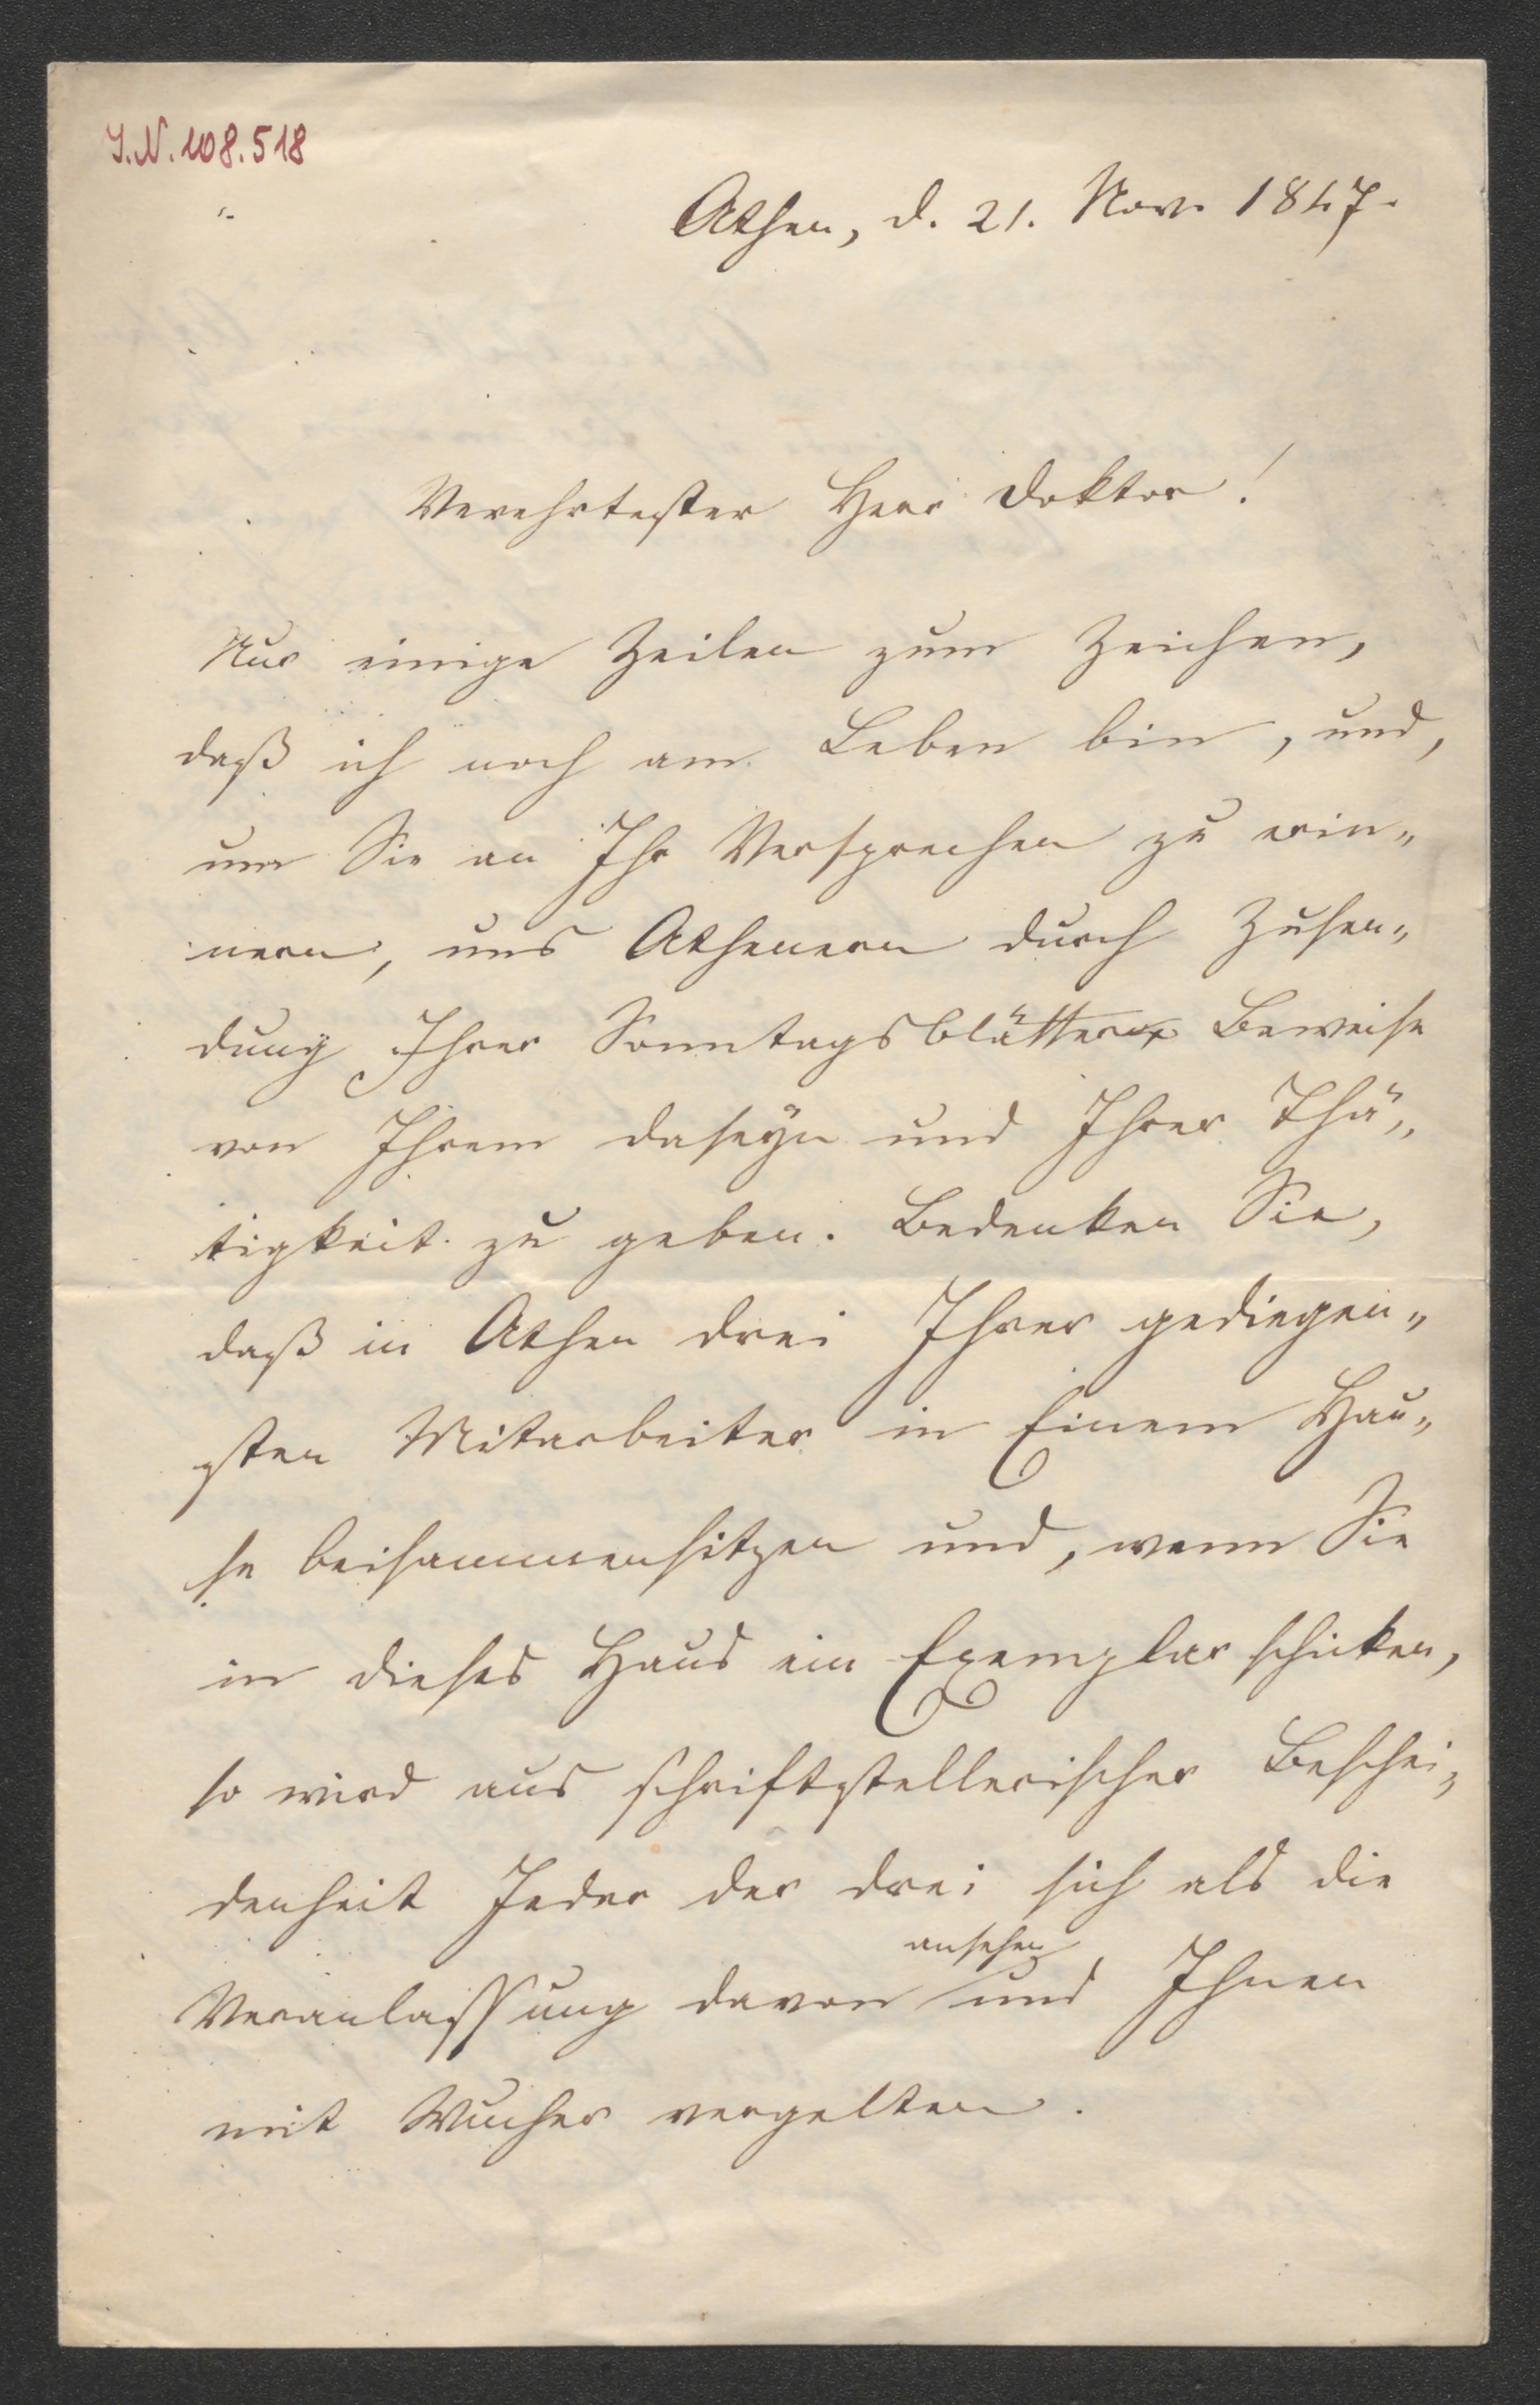 J.N. 108.518
Athen, d. 21. Nov. 1847.
Verehrtester Herr Doktor!
Nur einige Zeilen zum Zeichen,
daß ich noch am Leben bin, und,
um Sie an Ihr Versprechen zu erin„
nern, uns Athenern durch Zusen„
dung Ihrer Sonntagsblätter Beweise
von Ihrem Daseyn und Ihrer Thä„
tigkeit zu geben. Bedenken Sie,
daß in Athen drei Ihrer gediegen„
sten Mitarbeiter in Einem Hau„
se beisammensitzen und, wenn Sie
in dieses Haus ein Exemplar schicken,
so wird aus schriftstellerischer Beschei„
denheit Jeder der drei sich als die
ansehen,
Veranlassung davon und Ihnen
mit Wucher vergelten.